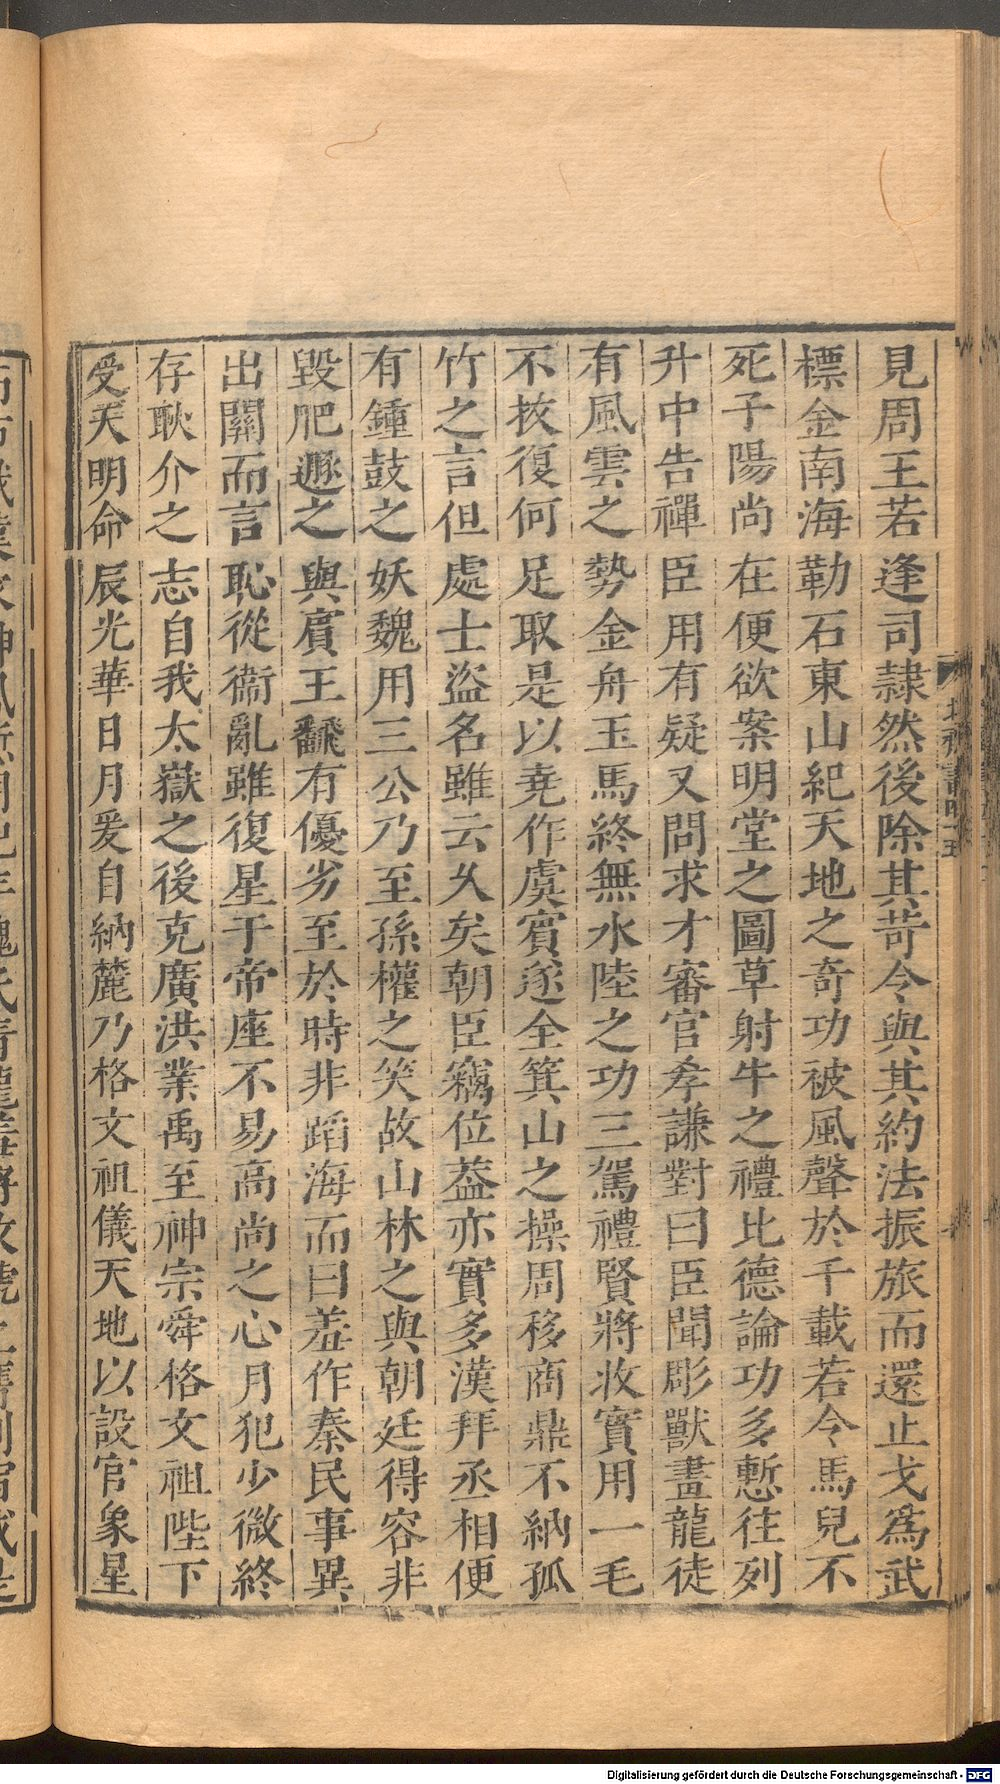 見周王若逢司隸然後除其苛令與其約法振旅而還止戈爲武
標金南海勒石東山紀天地之奇功被風聲於千載若令馬兒不
死子陽尚在便欲案明堂之圖草射牛之禮比德論功多慙往列
升中告禪臣用有疑又問求才審官孝謙對曰臣聞彫獸畫龍徒
有風雲之勢金舟玉馬終無水陸之功三駕禮賢將收實用一毛
不拔復何足取是以堯作虞賓遂全箕山之操周移商鼎不納孤
竹之言但處士盜名雖云久矣朝臣竊位蓋亦實多漢拜丞相便
有鍾鼓之妖魏用三公乃至孫權之笑故山林之與朝廷得容非
毀肥遯之與賓王翻有優劣至於時非蹈海而曰羞作秦民事異
出關而言恥從衞亂雖復星干帝座不易高尚之心月犯少微終
存耿介之志自我太嶽之後克廣洪業禹至神宗舜格文祖陛下
受天明命辰光華日月爰自納麓乃格文祖儀天地以設官象星
北齊書
Digitalisierung gefördert durch die Deutsche Forschungsgemeinschaft - DFG